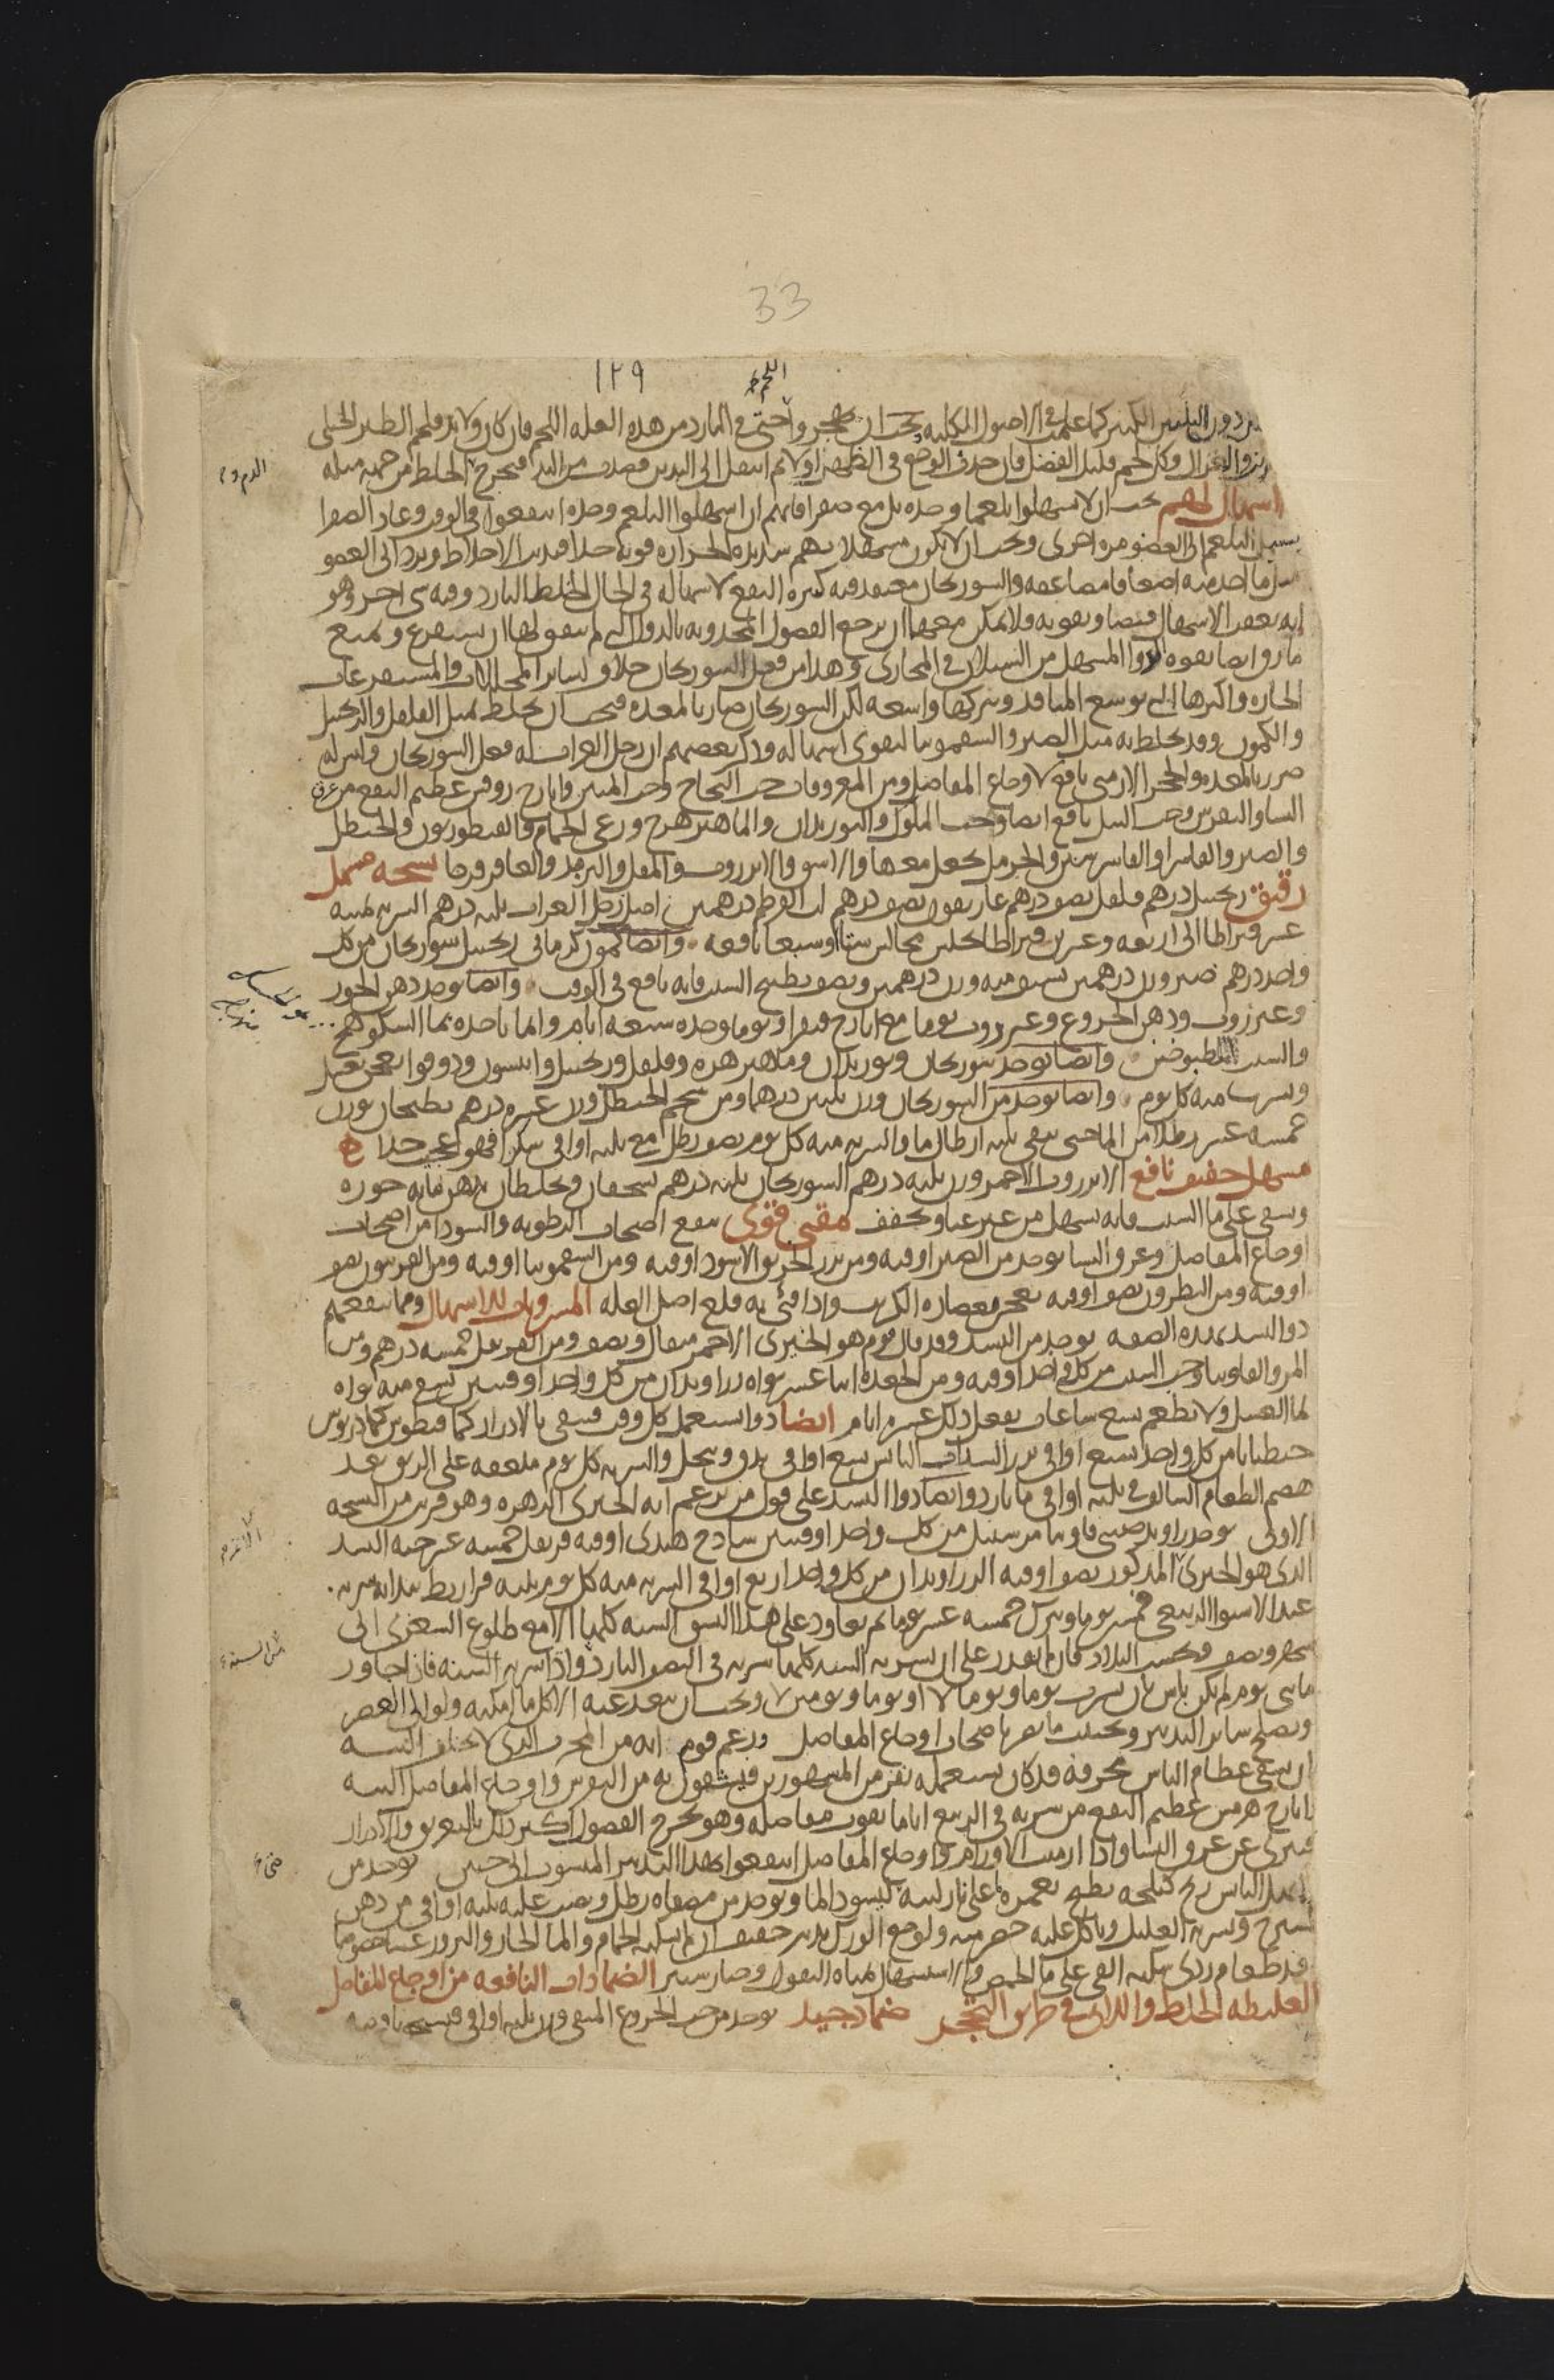 33
١٢٩
دون التليين الكثير كما علمت في الاصول الكلية ويجب ان يهجر واحتى في البارد من هذه العلة اللحم فان كان ولا بد فلحم الطير الجبلي
والغزال وكل لحم قليل الفضل فان حدث الوجع في الظهر اولا ثم انتقل الى اليدين فصدت من اليد فيخرج الخلط من جهة ميله
اسهال لهم يجب ان لا يسهلوا بلغما وحده بل مع صفرا فانهم ان اسهلوا البلغم وحده انتفعوا في الوقت وعاد الصفرا
يسيل البلغم الى العضو مرة اخرى ويجب ان لا يكون مسهلاتهم شديدة الحرارة قوية جدا فتذيب الاخلاط ويرد الى العضو
مثل ما اخذ منه اضعافا مضاعفة والسورنجان معتمد فيه كثرة النفع لاسهاله في الحال الخلط البارد وفيه شي اخر وهو
انه يعقب الاسهال قبضا وتقوية ولا يمكن معهما ان يرجع الفضول المجذوبة بالدوا التي لم يتفق لها ان يستفرغ ويمنع
ما رق ايضا بقوة الدوا المسهل من السيلان في المجاري وهذا من فعل السورنجان خلاف لساير المحللات والمستفرغات
الحارة واكثرها التي توسع المنافذ وتتركها واسعة لكن السورنجان ضار بالمعدة فيجب ان يخلط بمثل الفلفل والزنجبيل
والكمون وقد يخلط به مثل الصبر والسقمونيا ليقوى اسهاله وذكر بعضهم ان رجل الغراب له فعل السورنجان وليس له
ضرر بالمعدة والحجر الارمني نافع لاوجاع المفاصل ومن المعروفات حب النجاح وحب المنتن وايارج روفس عظيم النفع من عرق
النسا والنقرس وحب النيل نافع ايضا وحب الملوك والبوزيدان والماهيزهرج ورعي الحمام والقنطوريون والحنظل
والصبر والفاشرا والفاشرشتين والحرمل يجعل معها والاشق والانزروت والمقل والتربد والعاقرقرحا نسخة مسهل
رقيق زنجبيل درهم فلفل نصف درهم غاريقون نصف درهم لب القرطم درهمين اصل رجل الغراب ثلثة درهم الشربة
عشر قيراطا الى اربعة وعشرين قيراطا يجلس مجالس ستا او سبعا نافعة وايضا كمون كرماني زنجبيل سورنجان من كل
واحد درهم صبر وزن درهمين يسف منه وزن درهمين ونصف بطبيخ الشبت فانه نافع في الوقت وايضا يوخذ دهن الجوز
وعنزروت ودهن الخروع وعنزروت يوما مع ايارج فيقرا ويوما وحده سبعة ايام وانما ياخذه بما السكوهج
والشبت المطبوخين وايضا يوخذ سورنجان وبوزيدان وماهيزهره وفلفل وزنجبيل وانيسون ودوقوا يعجن بعسل
ويشرب منه كل يوم وايضا يوخذ من السورنجان وزن ثلثين درهما ومن شحم الحنظل وزن عشرة درهم يطبخان بوزن
خمسة عشر رطلا من الما حتى يبقى ثلثة ارطال ما والشربة منه كل يوم نصف رطل مع ثلثة اواقي سكرا فهو عجيب جدا
مسهل خفيف نافع الانزروت الاحمر وزن ثلثة درهم السورنجان ثلثة درهم يسحقان ويخلطان بدهن ماية جوزة
ويسقى على ما الشبت فانه يسهل من غير عنا ويخفف مقيي قوي ينفع اصحاب الرطوبة والسودا من اصحاب
اوجاع المفاصل وعرق النسا يوخذ من الصبر اوقية ومن بزر الخربق الاسود اوقية ومن السقمونيا اوقية ومن الفربيون نصف
اوقية ومن النطرون نصف اوقية يعجن بعصارة الكرنب واذا قئ به قلع اصل العلة المشروبات للاسهال ومما ينفعهم
دوا البسد بهذه الصفة يوخذ من البسد وقد قال قوم هو الخيري الاحمر مثقال ونصف ومن القرنفل خمسة درهم ومن
المر والفاونيا وحب الشبت من كل واحد اوقية ومن الجعدة اثنا عشر نواة زراوندان من كل واحد اوقيتين يسقى منه نواة
بما العسل ولا يطعم تسع ساعات يفعل ذلك عشرة ايام ايضا دوا يستعمل كل وقت فيسقى بالادرار كمافيطوس كمادريوس
جنطيانا من كل واحد تسع اواقي بزر السذاب اليابس تسع اواقي يدق وينخل والشربة كل يوم ملعقة على الريق بعد
هضم الطعام السالف في ثلثة اواقي ما بارد وايضا دوا البسد على قول من يزعم انه الخيري الزهرة وهو قريب من النسخة
الاولى يوخذ زراوند صيني فاونيا مر سنبل من كل واحد اوقيتين ساذج هندي اوقية قرنفل خمسة عشر حبة البسد
الذي هو الخيري المذكور نصف اوقية الزراوندان من كل واحد اربع اواقي الشربة منه كل يوم ثلثة قراريط يبدا بشربه
عند الاستوا الربيعي خمسين يوما ويترك خمسة عشر يوما ثم يعاود على هذا النسق السنة كلها الا مع طلوع الشعرى الى
شهر ونصف وبحسب البلاد فان لم يقدر على ان يشربه السنة كلها شربه في النصف البارد واذا شربه السنة فاذا جاوز
مايتي يوم لم يكن باس بان يشرب يوما ويوما لا او يوما ويومين لا ويجب ان يبعد عنه الاكل ما امكنه ولو الى العصر
ويصلح ساير التدبير ويجتنب ما يضر باصحاب اوجاع المفاصل وزعم قوم انه من المجرب الذي لا يخلف البتة
ان يسقى عظام الناس محرقة قد كان يستعمله نفر من المشهورين فيشفون به من النقرس واوجاع المفاصل البتة
ايارج هرمس عظيم النفع من شربه في الربيع اياما تقوت مفاصله وهو يخرج الفضول اكثر ذلك بالتعريق والادرار
فيبري عن عرق النسا واذا ازمنت الاورام واوجاع المفاصل انتفعوا بهذا التدبير المنسوب الى حنين يوخذ من
الحندل اليابس ربع كيلجة يطبخ بغمره ما على نار لينة ليسود الما ويوخذ من مصفاه رطل ويصب عليه ثلثة اواقي من دهن
شيرج ويشربه العليل وياكل عليه حصرمية ولوجع الورك تدبير خفيف ان لم يسكنه الحمام والما الحار والبزور
بعد طعام ردي سكنه القي على ما الحمص والاستسهال بمياه البقول وخيارشنبر الضمادات النافعة من اوجاع المفاصل
الغليظة الخلط واللذان في طريق التحجر ضماد جيد يوخذ من حب الخروع المنقى وزن ثلثة اواقي فيسحق باوقية